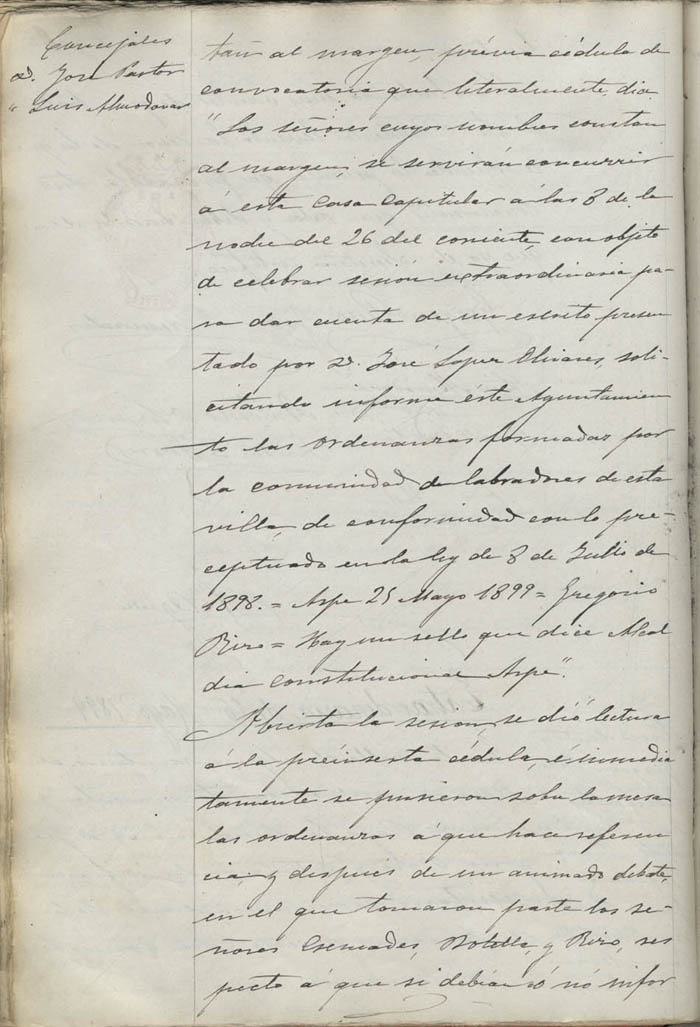 Concejales
D. José Pastor
" Luis Almodovar
tan al margen, prévia cédula de
convocatoria que literalmente dice
"Los señores cuyos nombres constan
al margen, se servirán concurrir
á esta Casa Capitular á las 8 de la
noche del 26 del corriente, con objeto
de celebrar sesión extraordinaria pa-
ra dar cuenta de un escrito presen
tado por D. José Lopez Olivares, soli-
citando informe éste Ayuntamien
to las ordenanzas formadas por
la comunidad de labradores de esta
villa, de conformidad con lo pre-
ceptuado en la ley de 8 de Julio de
1898. = Aspe 25 Mayo 1899 = Gregorio
= Hay un sello que dice Alcal
dia constitucional Aspe".
Abierta la sesión, se dió lectura
á la preinserta cédula, é inmedia
tamente se pusieron sobre la mesa
las ordenanzas á que hace referen
cia, y después de un animado debate,
en el que tomaron parte los se-
ñores Botella, y res
pecto á que si debían ó nó infor